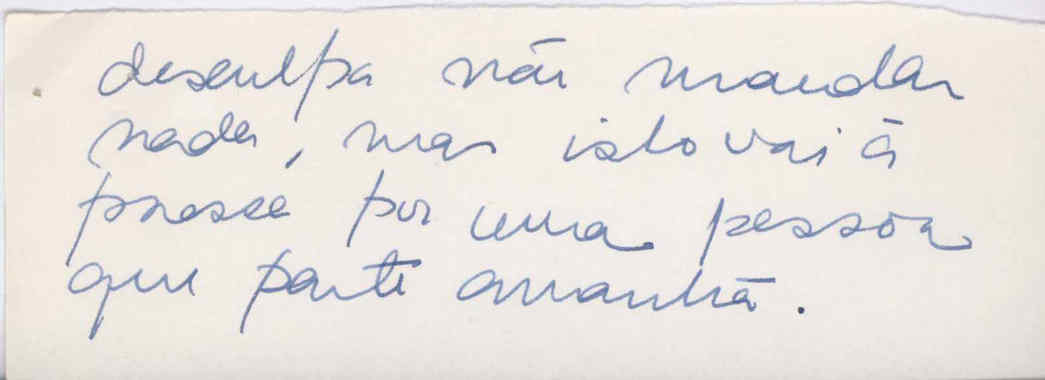 desculpa não mandar
nada, mas isto vai à
pressa por uma pessoa
que parte amanhã.